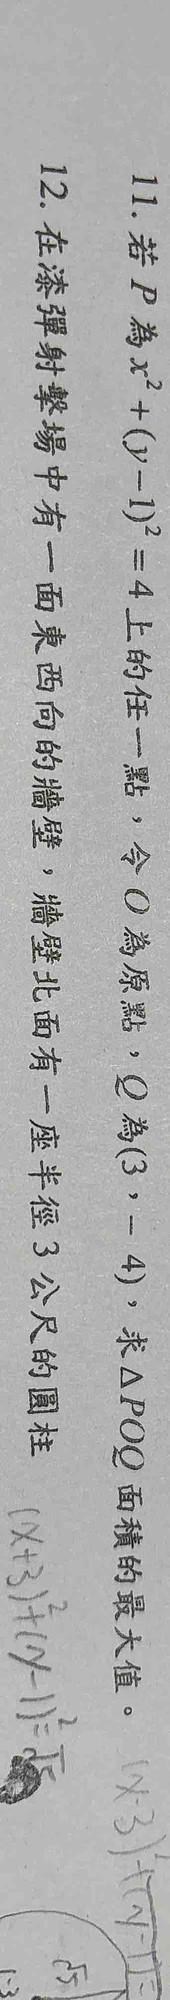 11. 若 P 為 x² + (y − 1)² = 4 上的任一點，令 O 為原點，Q 為(3，− 4)，求 △POQ 面積的最大值。
(x-3)²+(y-1)²=
12. 在漆彈射擊場中有一面東西向的牆壁，牆壁北面有一座半徑 3 公尺的圓柱
(x+3)²+(y-1)²=√5
√5